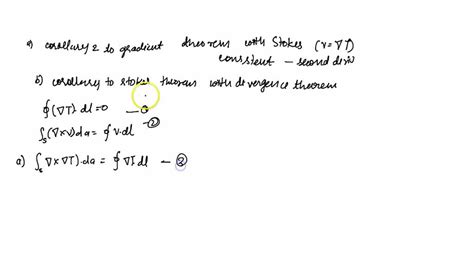 a) corollary 2 to gradient theorem with Stokes (v = ∇T)
consistent – second deriv
b) corollary to stokes theorem with devergence theorem
∮(∇T) dl = 0 —①
∫s (∇×v) da = ∮ v·dl —②
a) ∫s ∇×∇T)·da = ∮ ∇T dl —②